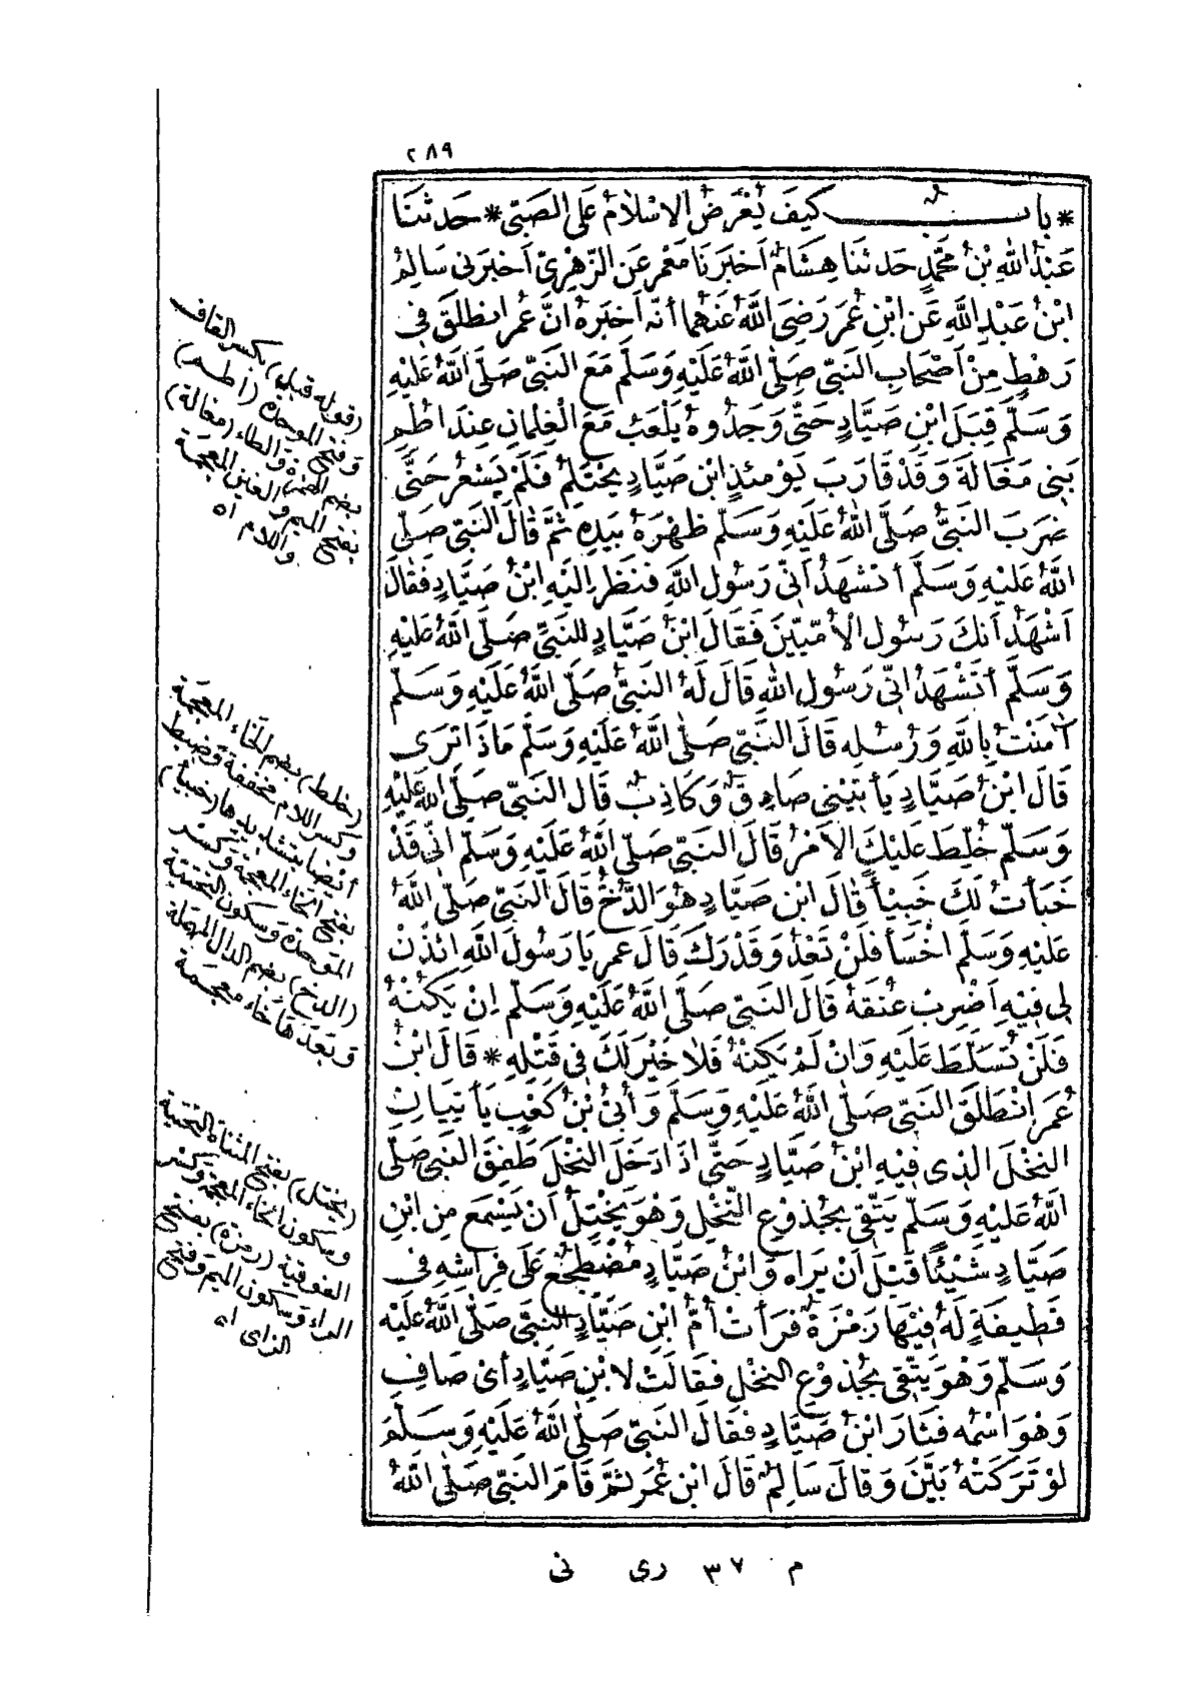 ٢٨٩
* باب كَيْفَ يُعْرَضُ الاِسْلَامُ عَلَى الصَّبِىِّ * حَدَّثَنَا
عَبْدُ اللهِ بْنُ مُحَمَّدٍ حَدَّثَنَا هِشَامٌ اَخْبَرَنَا مَعْمَرٌ عَنِ الزُّهْرِىِّ اَخْبَرَنِى سَالِمُ
ابْنُ عَبْدِ اللَّهِ عَنِ ابْنِ عُمَرَ رَضِىَ اللَّهُ عَنْهُمَا أنَّهُ اَخْبَرَهُ انَّ عُمَرَ انْطَلَقَ فِى
رَهْطٍ مِنْ اَصْحَابِ النَّبِىِّ صَلَّى اللَّهُ عَلَيْهِ وَسَلَّمَ مَعَ النَّبِىِّ صَلَّى اللَّهُ عَلَيْهِ
وَسَلَّمَ قِبَلَ ابْنِ صَيَّادٍ حَتَّى وَجَدُوهُ يَلْعَبُ مَعَ الْغِلْمَانِ عِنْدَ اُطُمِ
بَنِى مَغَالَةَ وَقَدْ قَارَبَ يَوْمَئِذٍ ابْنُ صَيَّادٍ يَحْتَلِمُ فَلَمْ يَشْعُرْ حَتَّى
ضَرَبَ النَّبِىُّ صَلَّى اللهُ عَلَيْهِ وَسَلَّمَ ظَهْرَهُ بِيَدِهِ ثُمَّ قَالَ النَّبِىُّ صَلَّى
اللَّهُ عَلَيْهِ وَسَلَّمَ أتَشْهَدُ اَنِّى رَسُولُ اللَّهِ فَنَظَرَ اِلَيْهِ ابْنُ صَيَّادٍ فَقَالَ
اَشْهَدُ اَنَّكَ رَسُولُ الْأُمِّيِّينَ فَقَالَ ابْنُ صَيَّادٍ لِلنَّبِىِّ صَلَّى اللَّهُ عَلَيْهِ
وَسَلَّمَ أتَشْهَدُ اَنِّى رَسُولُ اللهِ قَالَ لَهُ النَّبِىُّ صَلَّى اللَّهُ عَلَيْهِ وَسَلَّمَ
اٰمَنْتُ بِاللَّهِ وَرُسُلِهِ قَالَ النَّبِىُّ صَلَّى اللَّهُ عَلَيْهِ وَسَلَّمَ مَاذَا تَرَى
قَالَ ابْنُ صَيَّادٍ يَأْتِينِى صَادِقٌ وَكَاذِبٌ قَالَ النَّبِىُّ صَلَّى اللهُ عَلَيْهِ
وَسَلَّمَ خُلِطَ عَلَيْكَ الاَمْرُ قَالَ النَّبِىُّ صَلَّى اللَّهُ عَلَيْهِ وَسَلَّمَ اِنِّى قَدْ
خَبَأْتُ لَكَ خَبِيْأً قَالَ ابْنُ صَيَّادٍ هُوَ الدُّخُّ قَالَ النَّبِىُّ صَلَّى اللَّهُ
عَلَيْهِ وَسَلَّمَ اخْسَأْ فَلَنْ تَعْدُوَ قَدْرَكَ قَالَ عُمَرُ يَا رَسُولَ اللَّهِ ائْذَنْ
لِى فِيْهِ اَضْرِبْ عُنُقَهُ قَالَ النَّبِىُّ صَلَّى اللَّهُ عَلَيْهِ وَسَلَّمَ اِنْ يَكُنْهُ
فَلَنْ تُسَلَّطَ عَلَيْهِ وَاِنْ لَمْ يَكُنْهُ فَلَا خَيْرَ لَكَ فِى قَتْلِهِ * قَالَ ابْنُ
عُمَرَ اِنْطَلَقَ النَّبِىُّ صَلَّى اللَّهُ عَلَيْهِ وَسَلَّمَ وَأُبَىُّ بْنُ كَعْبٍ يَأْتِيَانِ
النَّخْلَ الَّذِى فِيْهِ ابْنُ صَيَّادٍ حَتَّى اذَا دَخَلَ النَّخْلَ طَفِقَ النَّبِىُّ صَلَّى
اللَّهُ عَلَيْهِ وَسَلَّمَ يَتَّقِى بِجُذُوعِ النَّخْلِ وَهُوَ يَخْتِلُ اَنْ يَسْمَعَ مِنِ ابْنِ
صَيَّادٍ شَيْئًا قَبْلَ اَنْ يَرَاهُ وَابْنُ صَيَّادٍ مُضْطَجِعٌ عَلَى فِرَاشِهِ فِى
قَطِيفَةٍ لَهُ فِيْهَا رَمْزَةٌ فَرَأَتْ اُمُّ ابْنِ صَيَّادٍ النَّبِىَّ صَلَّى اللَّهُ عَلَيْهِ
وَسَلَّمَ وَهُوَ يَتَّقِى بِجُذُوْعِ النَّخْلِ فَقَالَتْ لِابْنِ صَيَّادٍ أىْ صَافِ
وَهُوَ اسْمُهُ فَثَارَ ابْنُ صَيَّادٍ فَقَالَ النَّبِىُّ صَلَّى اللَّهُ عَلَيْهِ وَسَلَّمَ
لَوْ تَرَكَتْهُ بَيَّنَ وَقَالَ سَالِمٌ قَالَ ابْنُ عُمَرَ ثُمَّ قَامَ النَّبِىُّ صَلَّى اللَّهُ
(قوله قبل) بكسر القاف
وفتح الموحدة (اطم)
بضم الهمزة والطاء (مغالة)
بفتح الميم والغين المعجمة
واللام اه
(خلط) بضم الخاء المعجمة
وكسر اللام مخففة وضبط
أيضا بتشديدها (خبيأ)
بفتح الخاء المعجمة وكسر
الموحدة وسكون التحتية
(الدخ) بضم الدال المهملة
وبعدها خاء معجمة
(يختل) بفتح المثناة التحتية
وسكون الخاء المعجمة وكسر
الفوقية (رمزة) بفتح
الراء وسكون الميم وفتح
الزاى اه
م ٣٧ رى نى